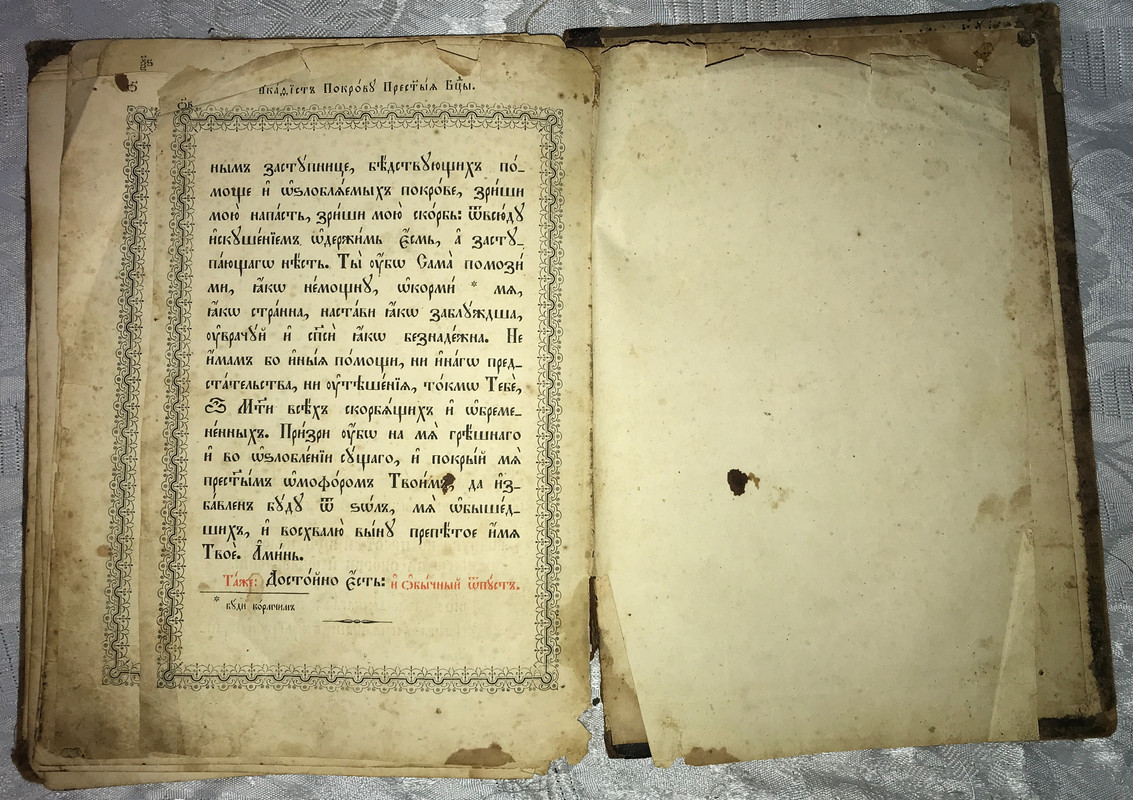 Ака́ѳїстъ Покро́вꙋ Прест҃ы́ѧ Бц҃ы.
нымъ застꙋ́пнице, бѣ́дствꙋющихъ по́-
моще и҆ ѡ҆ѕлоблѧ́емыхъ покро́ве, зри́ши
мою̀ напа́сть, зри́ши мою̀ ско́рбь: ѿвсю́дꙋ
и҆скꙋше́нїемъ ѡ҆держи́мь є҆́смь, а҆ застꙋ-
па́ющагѡ нѣ́сть. Ты̀ ᲂу҆̀бѡ Сама̀ помози́
ми, ꙗ҆́кѡ не́мощнꙋ, ѡ҆корми́ * мѧ,
ꙗ҆́кѡ стра́нна, наста́ви ꙗ҆́кѡ заблꙋ́ждша,
ᲂу҆врачꙋ́й и҆ сп҃сѝ ꙗ҆́кѡ безнаде́жна. Не
и҆́мамъ бо и҆ны́ѧ по́мощи, ни и҆на́гѡ пред-
ста́тельства, ни ᲂу҆тѣше́нїѧ, то́кмѡ Тебѐ,
Ѽ Мт҃и всѣ́хъ скорбѧ́щихъ и҆ ѡ҆бреме-
не́нныхъ. При́зри ᲂу҆̀бѡ на мѧ̀ грѣ́шнаго
и҆ во ѡ҆ѕлобле́нїи сꙋ́щаго, и҆ покры́й мѧ̀
прест҃ы́мъ ѡ҆мофо́ромъ Твои́мъ, да и҆з-
ба́вленъ бꙋ́дꙋ ѿ ѕѡ́лъ, мѧ̀ ѡ҆быше́д-
шихъ, и҆ восхвалю̀ вы́нꙋ препѣ́тое и҆́мѧ
Твоѐ. А҆ми́нь.
Та́же: Досто́йно є҆́сть: и҆ ѻ҆бы́чный ѿпꙋ́стъ.
* бꙋди кормчимъ